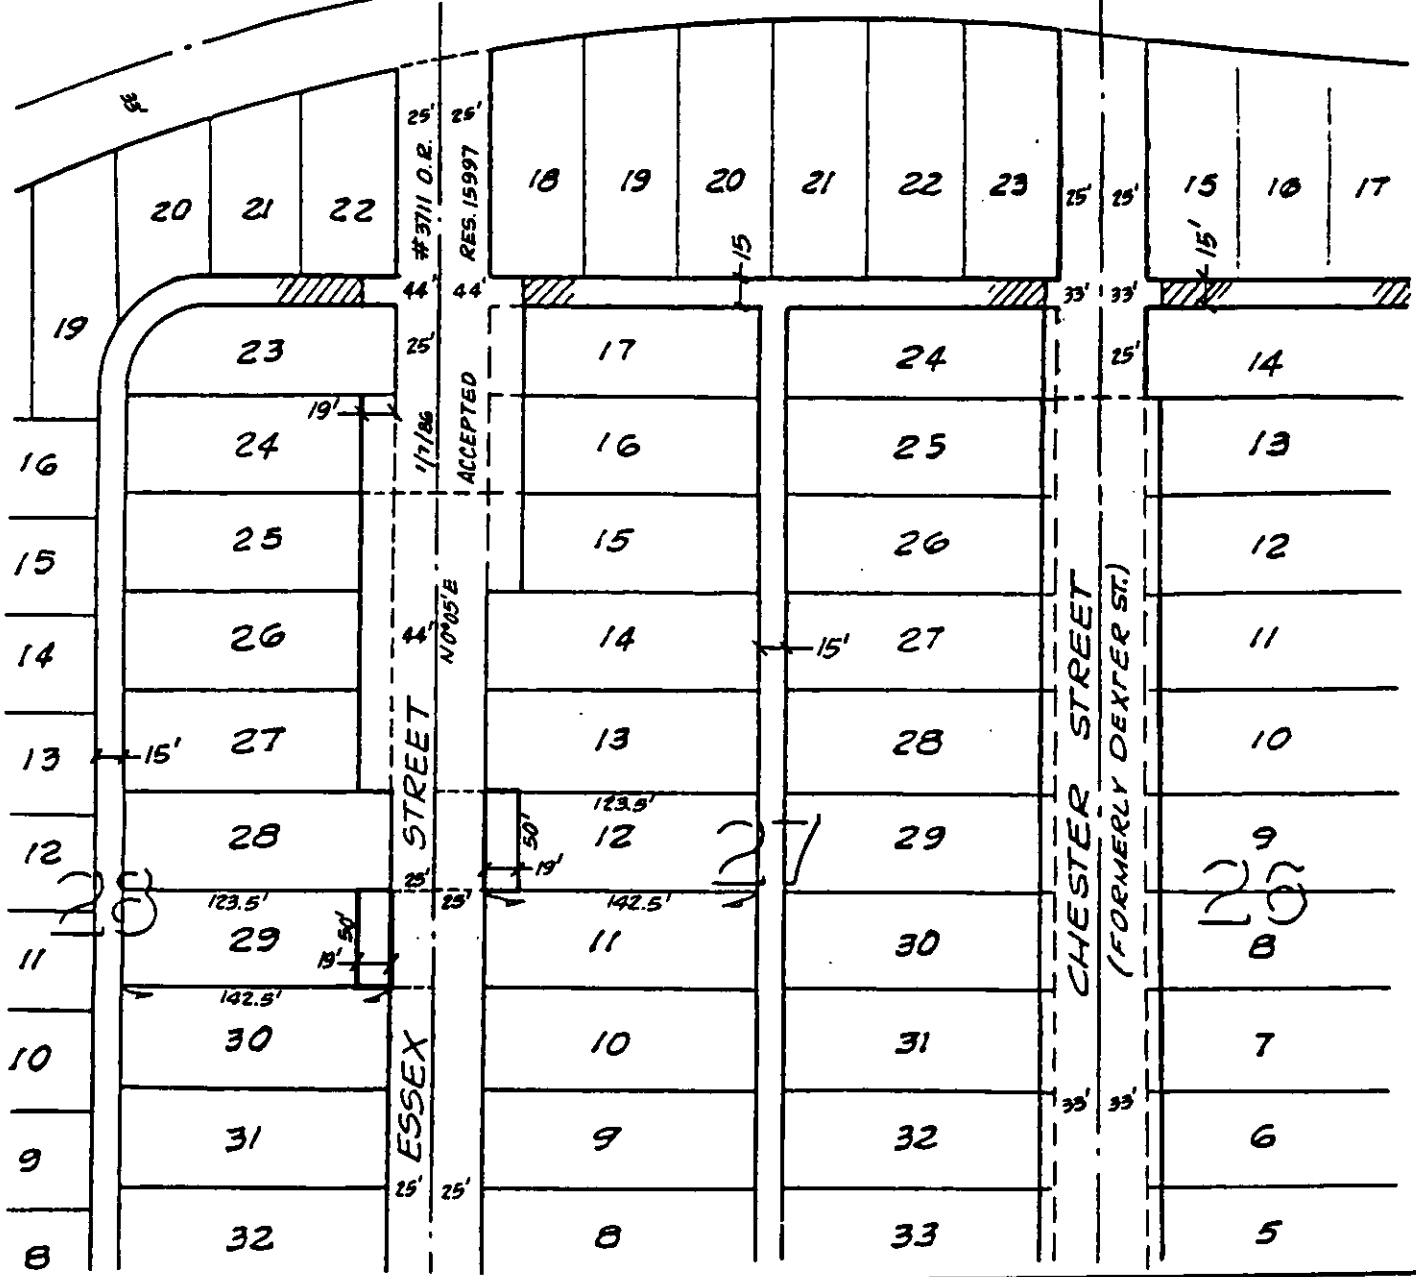 33'
25' 25'
#3711 O.R.
RES. 15997
20 21 22
18 19 20 21 22 23
25' 25'
15 16 17
15
15'
44' 44'
33' 33'
19
23
25'
17
24
25'
14
19'
1/7/86
ACCEPTED
16
24
16
25
13
15
25
15
26
12
14
26
44'
N0°05'E
14
15'
27
11
13
15'
27
13
28
10
12
28
25'
123.5'
12
50'
19'
27
29
9
28
26
123.5'
25'
142.5'
11
29
50'
19'
11
30
8
142.5'
10
30
10
31
7
33' 33'
9
31
9
32
6
25' 25'
8
32
8
33
5
ESSEX STREET
CHESTER STREET
(FORMERLY DEXTER ST.)